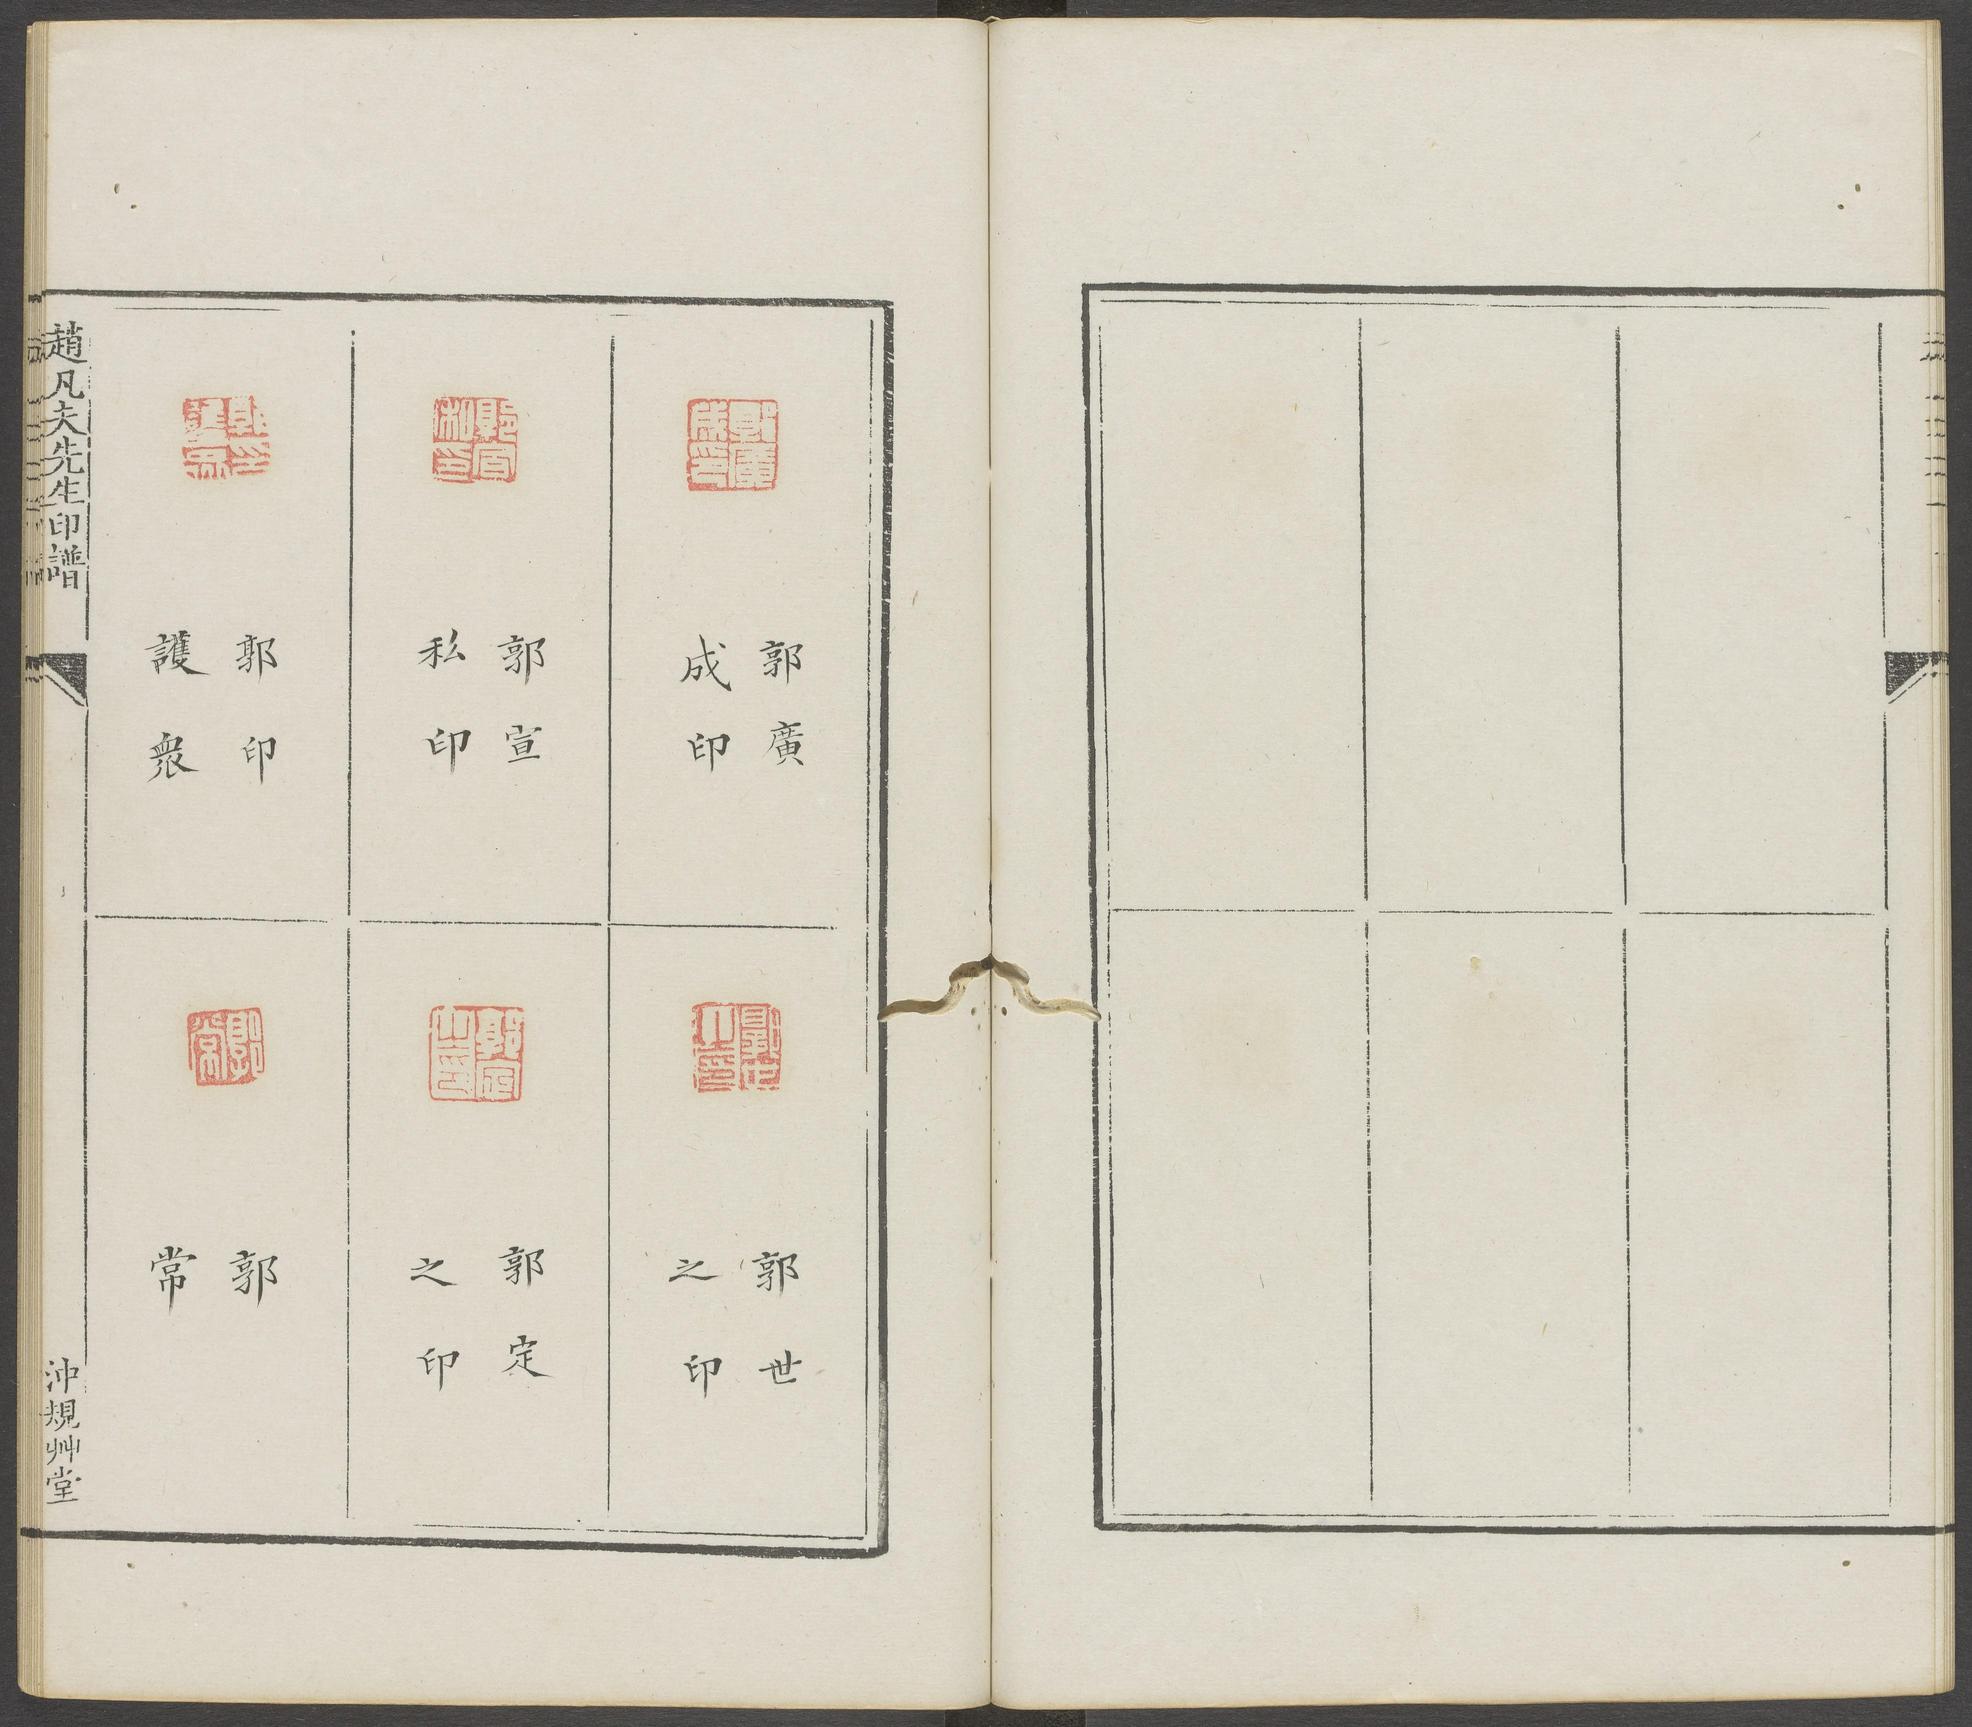 郭廣
成印
郭世
之印
郭宣
私印
郭定
之印
郭印
護衆
郭
常
趙凡夫先生印譜
沖規艸堂